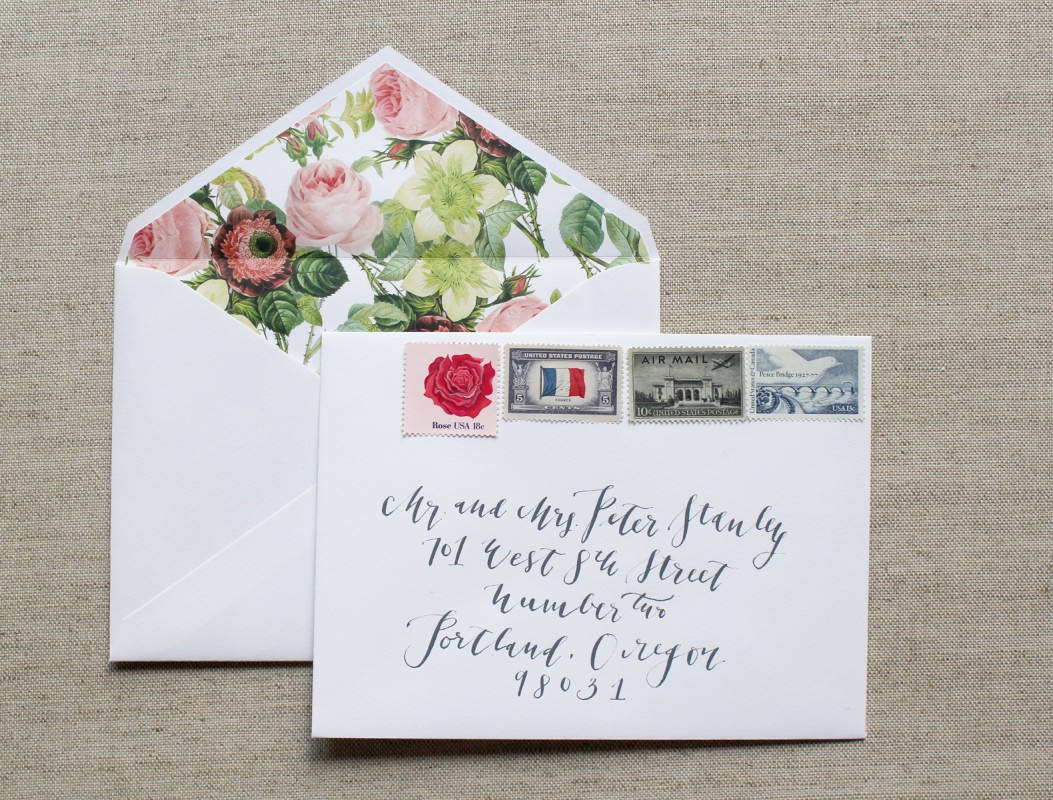 Rose USA 18c
UNITED STATES POSTAGE
5 5
FRANCE
CENTS
AIR MAIL
10¢ UNITED STATES POSTAGE
United States & Canada
Peace Bridge 1927-77
USA 13c
Mr. and Mrs. Peter Stanley
701 West 8th Street
Number two
Portland, Oregon
98031